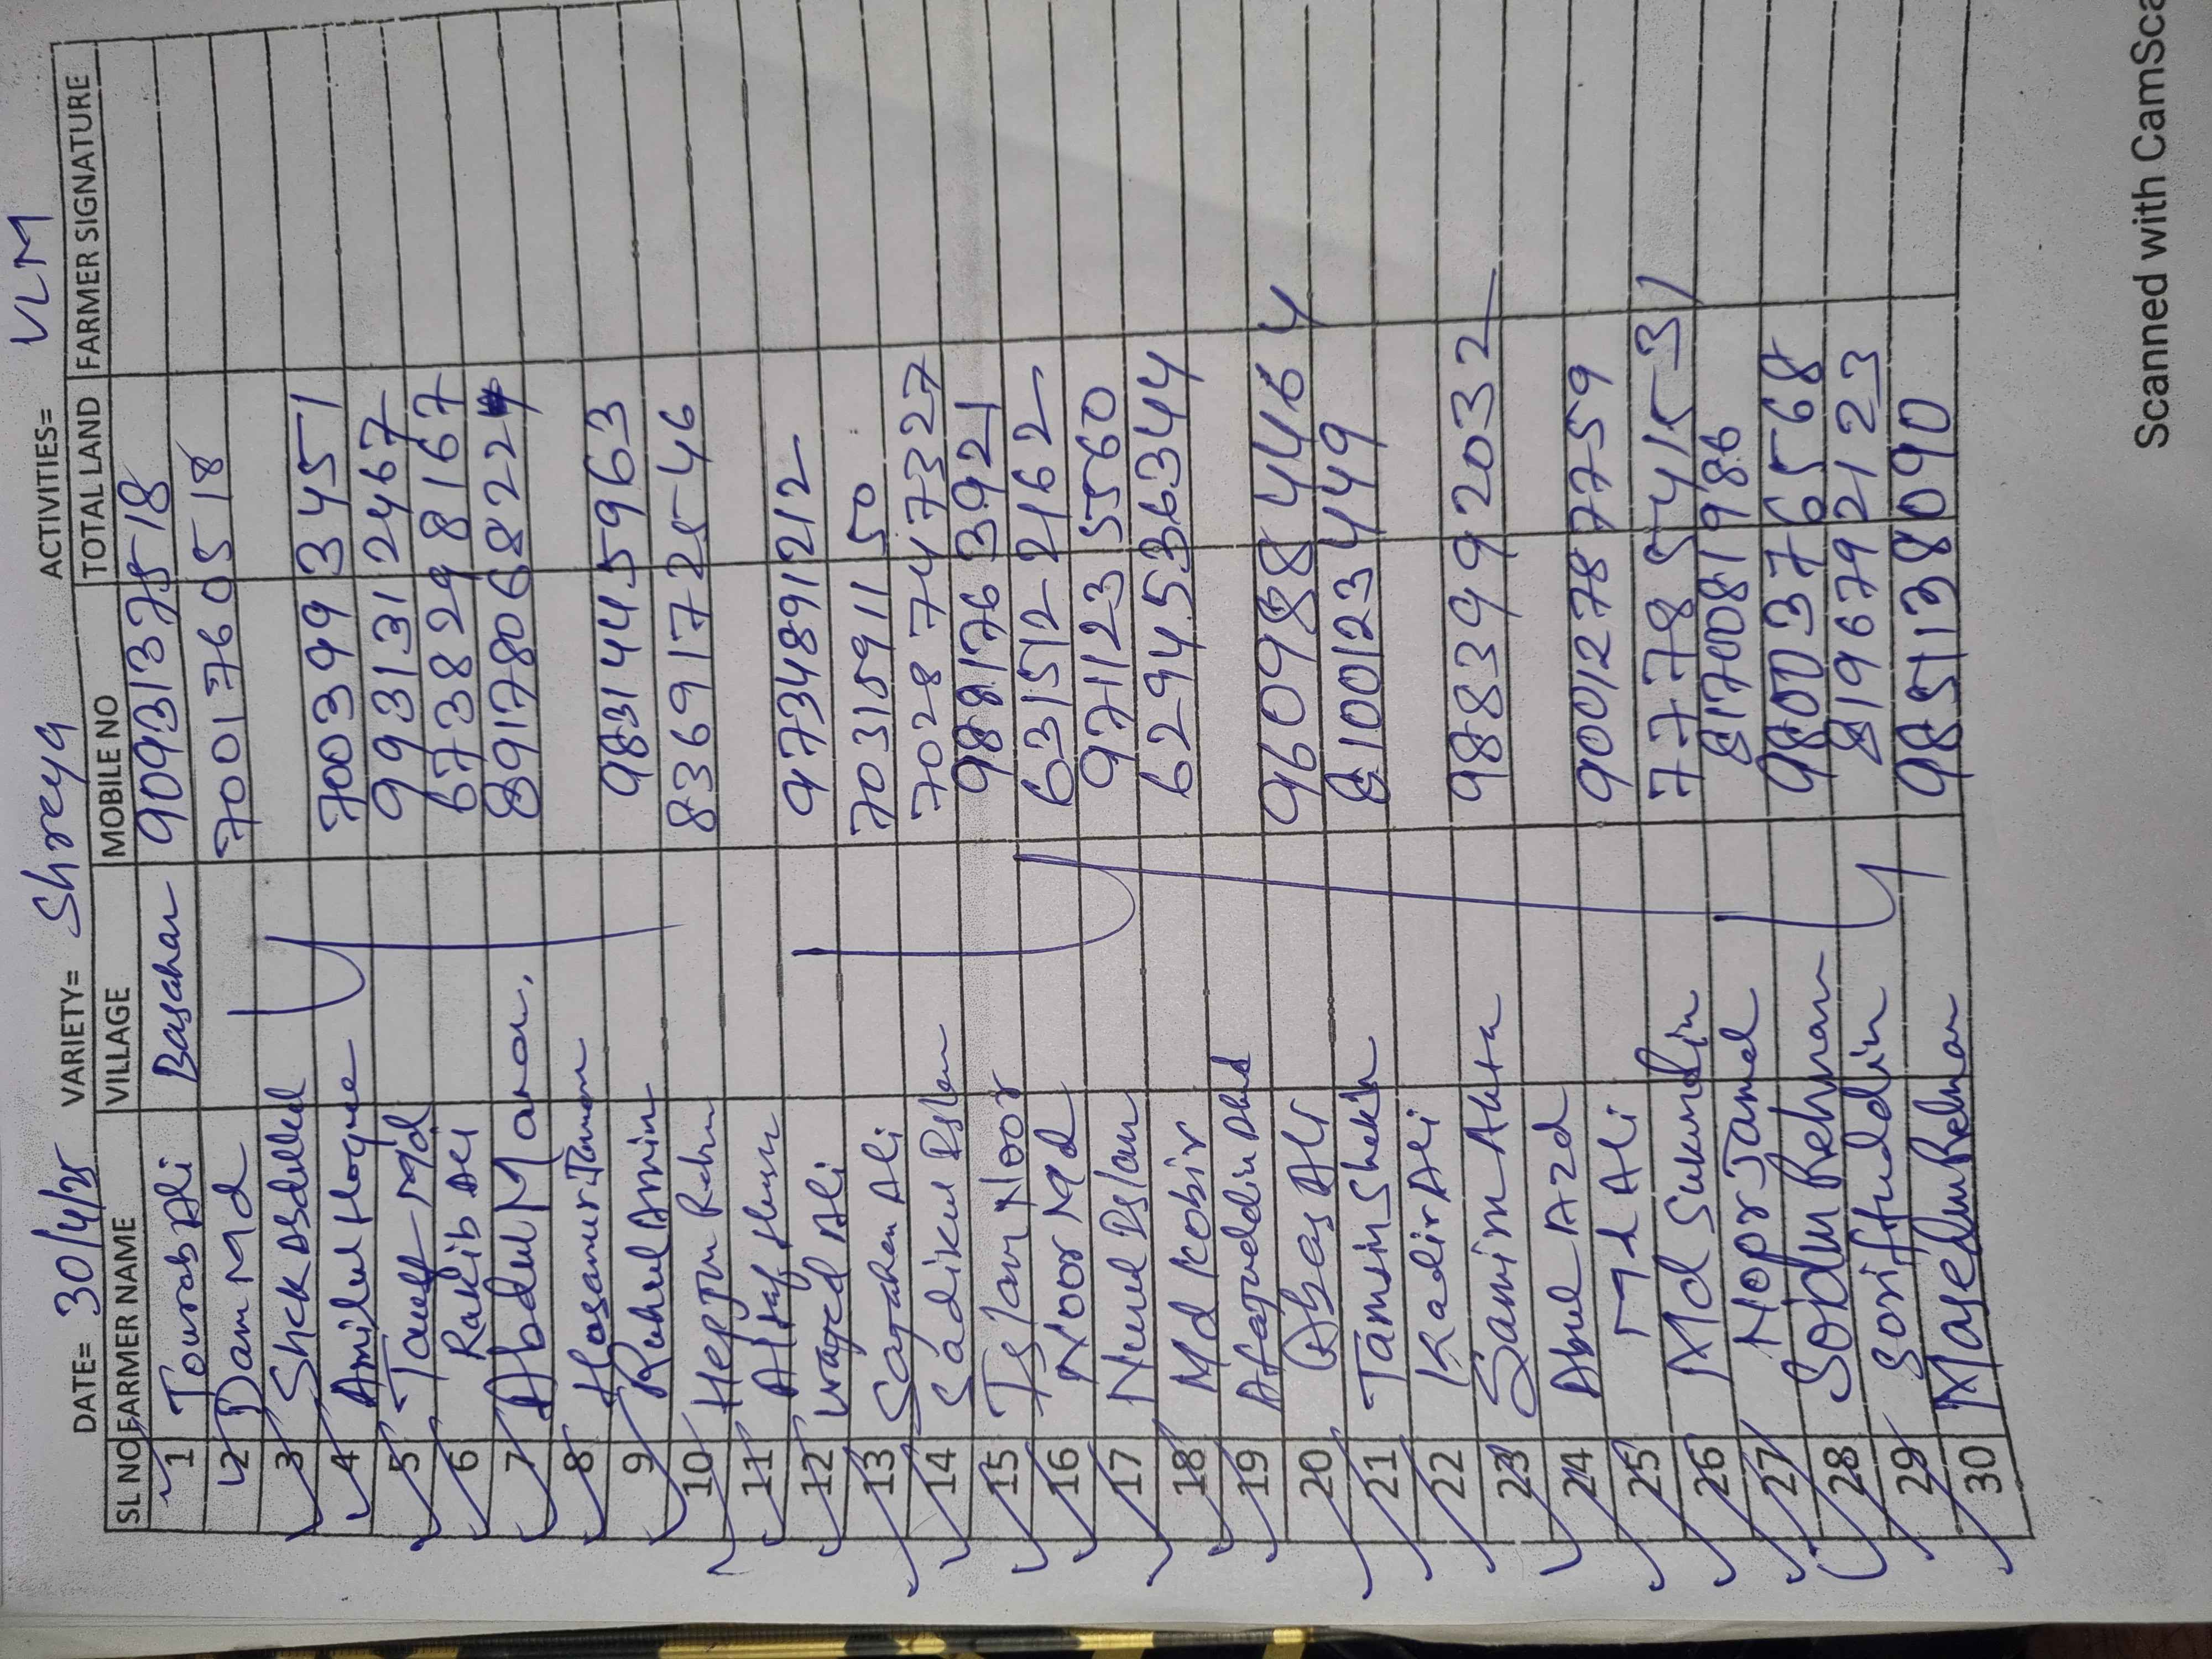 DATE= 30/4/25 VARIETY= Shreya ACTIVITIES= VLM
SL NO FARMER NAME VILLAGE MOBILE NO TOTAL LAND FARMER SIGNATURE
1 Tourab Ali Basahan 9093137518
2 Dam Md 7001760518
3 Shek Asdulled
4 Amilul Hoque 7003993451
5 Md 9931312467
6 Rakib Ali 6738298167
7 Abdul Manon. 8917806822
8 Hosanur
9 Ruhul Amin 9831445963
10 8369172546
11 Altaf
12 Wayed Ali 9734891212
13 Sagahen Ali 7031591150
14 Sadikul Islam 70287447327
15 Islam Noor 9881763921
16 Noor Md 6315122162
17 Nurul Islam 9711235560
18 Md Kobir 6294536344
19 Afajuddin
20 Abas Ali 9609884464
21 Tamsin Shekh 8100123449
22 Kadir Ali
23 Samim Akta 9883992032
24 Abul Azd
25 Md Ali 90012787759
26 Md Sukurdin 7778
27 Nopr Jamal 8170081986
28 Sodin Rehman 9800376568
29 Sorifuddin 8196792123
30 Masedur Rehman 9851138090
Scanned with CamSca